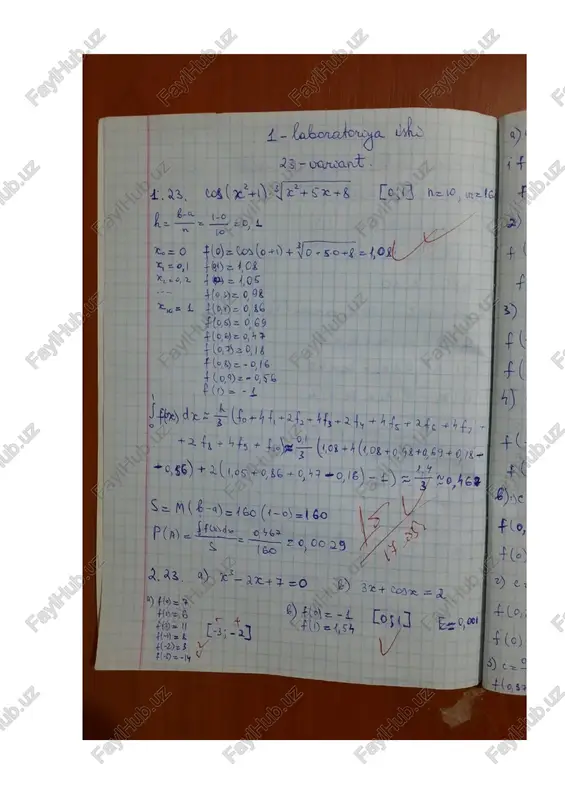 1-laboratoriya ishi
23-variant.
1.23. cos(x²+1)·∛(x²+5x+8) [0;1] n=10, m=160
h = (b-a)/n = (1-0)/10 = 0,1
x₀=0 f(0)=cos(0+1)+∛(0·50+8)=1,08
x₁=0,1 f(0,1)=1,08
x₂=0,2 f(0,2)=1,05
... f(0,3)=0,98
x₁₀=1 f(0,4)=0,86
f(0,5)=0,69
f(0,6)=0,47
f(0,7)=0,18
f(0,8)=-0,16
f(0,9)=-0,56
f(1)=-1
∫f(x)dx ≈ h/3 (f₀+4f₁+2f₂+4f₃+2f₄+4f₅+2f₆+4f₇-
+2f₈+4f₉+f₁₀) ≈ 0,1/3 (1,08+4(1,08+0,98+0,69+0,18-
-0,56)+2(1,05+0,86+0,47-0,16)-1) ≈ 1,4/3 ≈ 0,467
S=M(b-a)=160(1-0)=160
P(A)= ∫f(x)dx/S = 0,467/160 = 0,0029
15
2.23. a) x³-2x+7=0 b) 3x+cosx=2
a) f(0)=7 b) f(0)=-1 [0;1] E=0,001
f(1)=6 f(1)=1,54
f(2)=11
f(-1)=8 [-3;-2]
f(-2)=3
f(-3)=-14
a)
f
2)
f (
3)
f(-
f(
4)
f(-
b)
f(0,
f(0)
2) c=
f(0,
f(0)
3) c=
f(0,37
FaylHub.uz